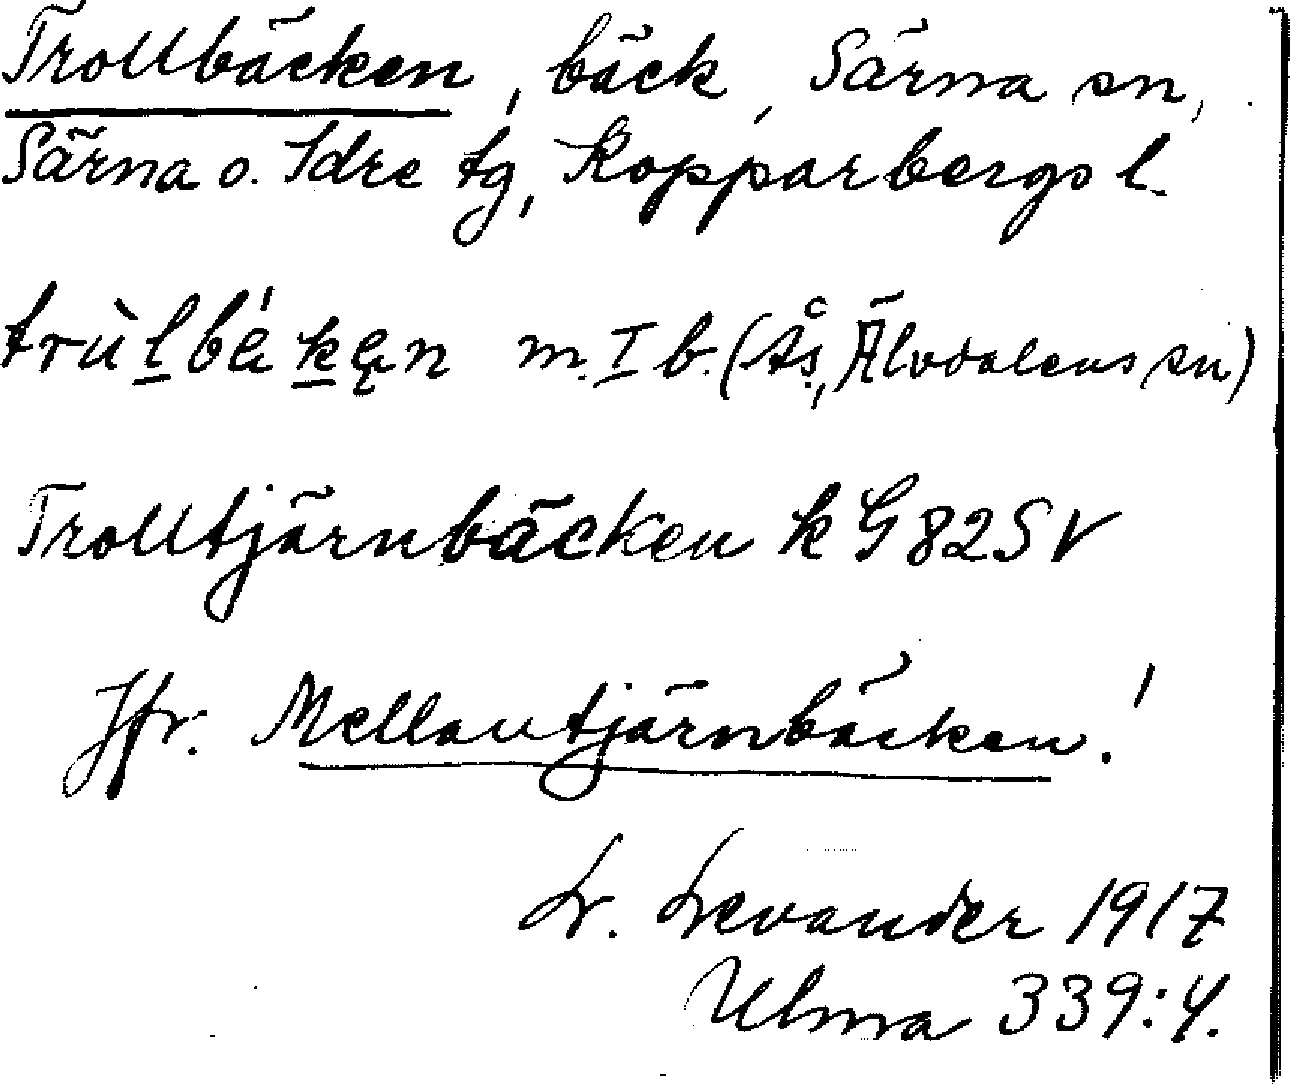 Trollbäcken, bäck, Särna sn,
Särna o. Idre tg, Kopparbergs l.
m. I b. (Ås, Älvdalens sn)
Trolltjärnbäcken k G 82 SV
Jfr. Mellantjärnbäcken!
L. Levander 1917
Ulma 339:4.